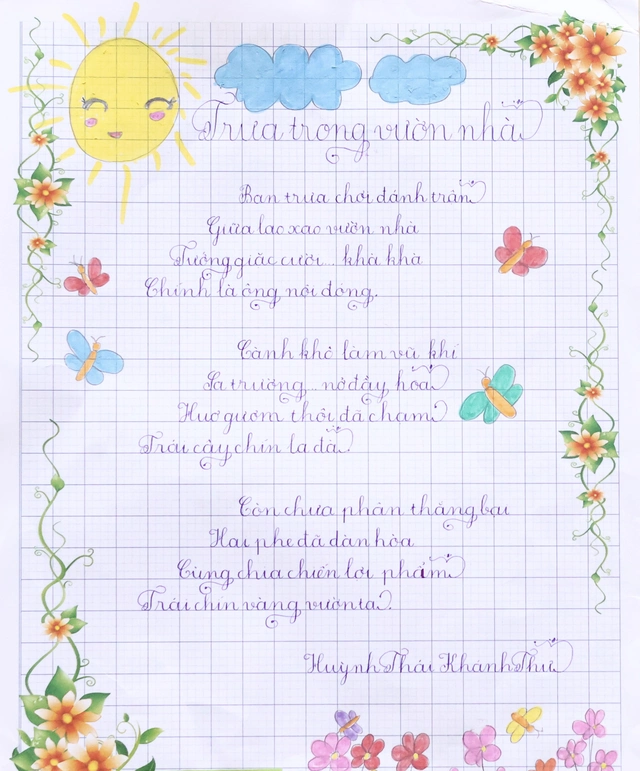 Trưa trong vườn nhà
Ban trưa chơi đánh trận
Giữa lao xao vườn nhà
Tướng giặc cười... khà khà
Chính là ông nội đóng.
Cành khô làm vũ khí
Sa trường... nở đầy hoa
Huơ gươm thôi đã chạm
Trái cây chín la đà
Còn chưa phân thắng bại
Hai phe đã dàn hòa
Cùng chia chiến lợi phẩm
Trái chín vàng vườn ta.
Huỳnh Thái Khánh Thư